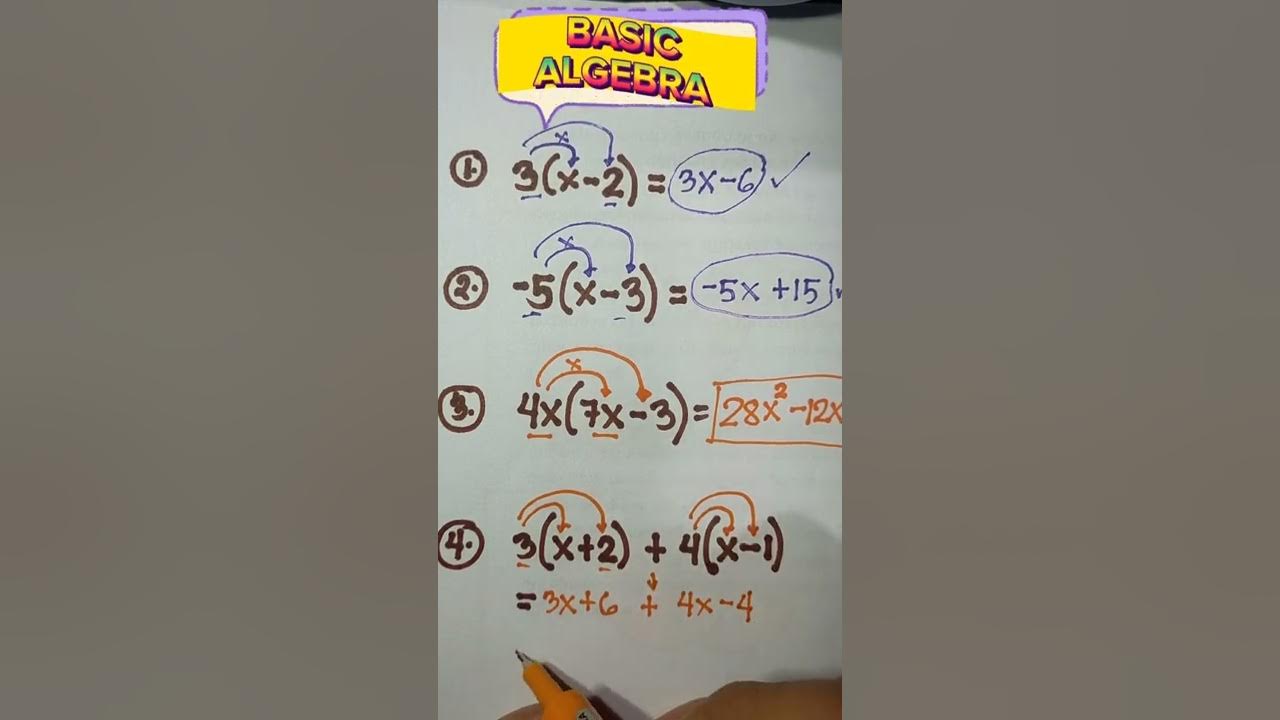 BASIC
ALGEBRA
x
1. 3(x-2) = 3x-6 ✓
x
2. -5(x-3) = -5x +15
x
3. 4x(7x-3) = 28x² -12x
4. 3(x+2) + 4(x-1)
= 3x+6 + 4x-4